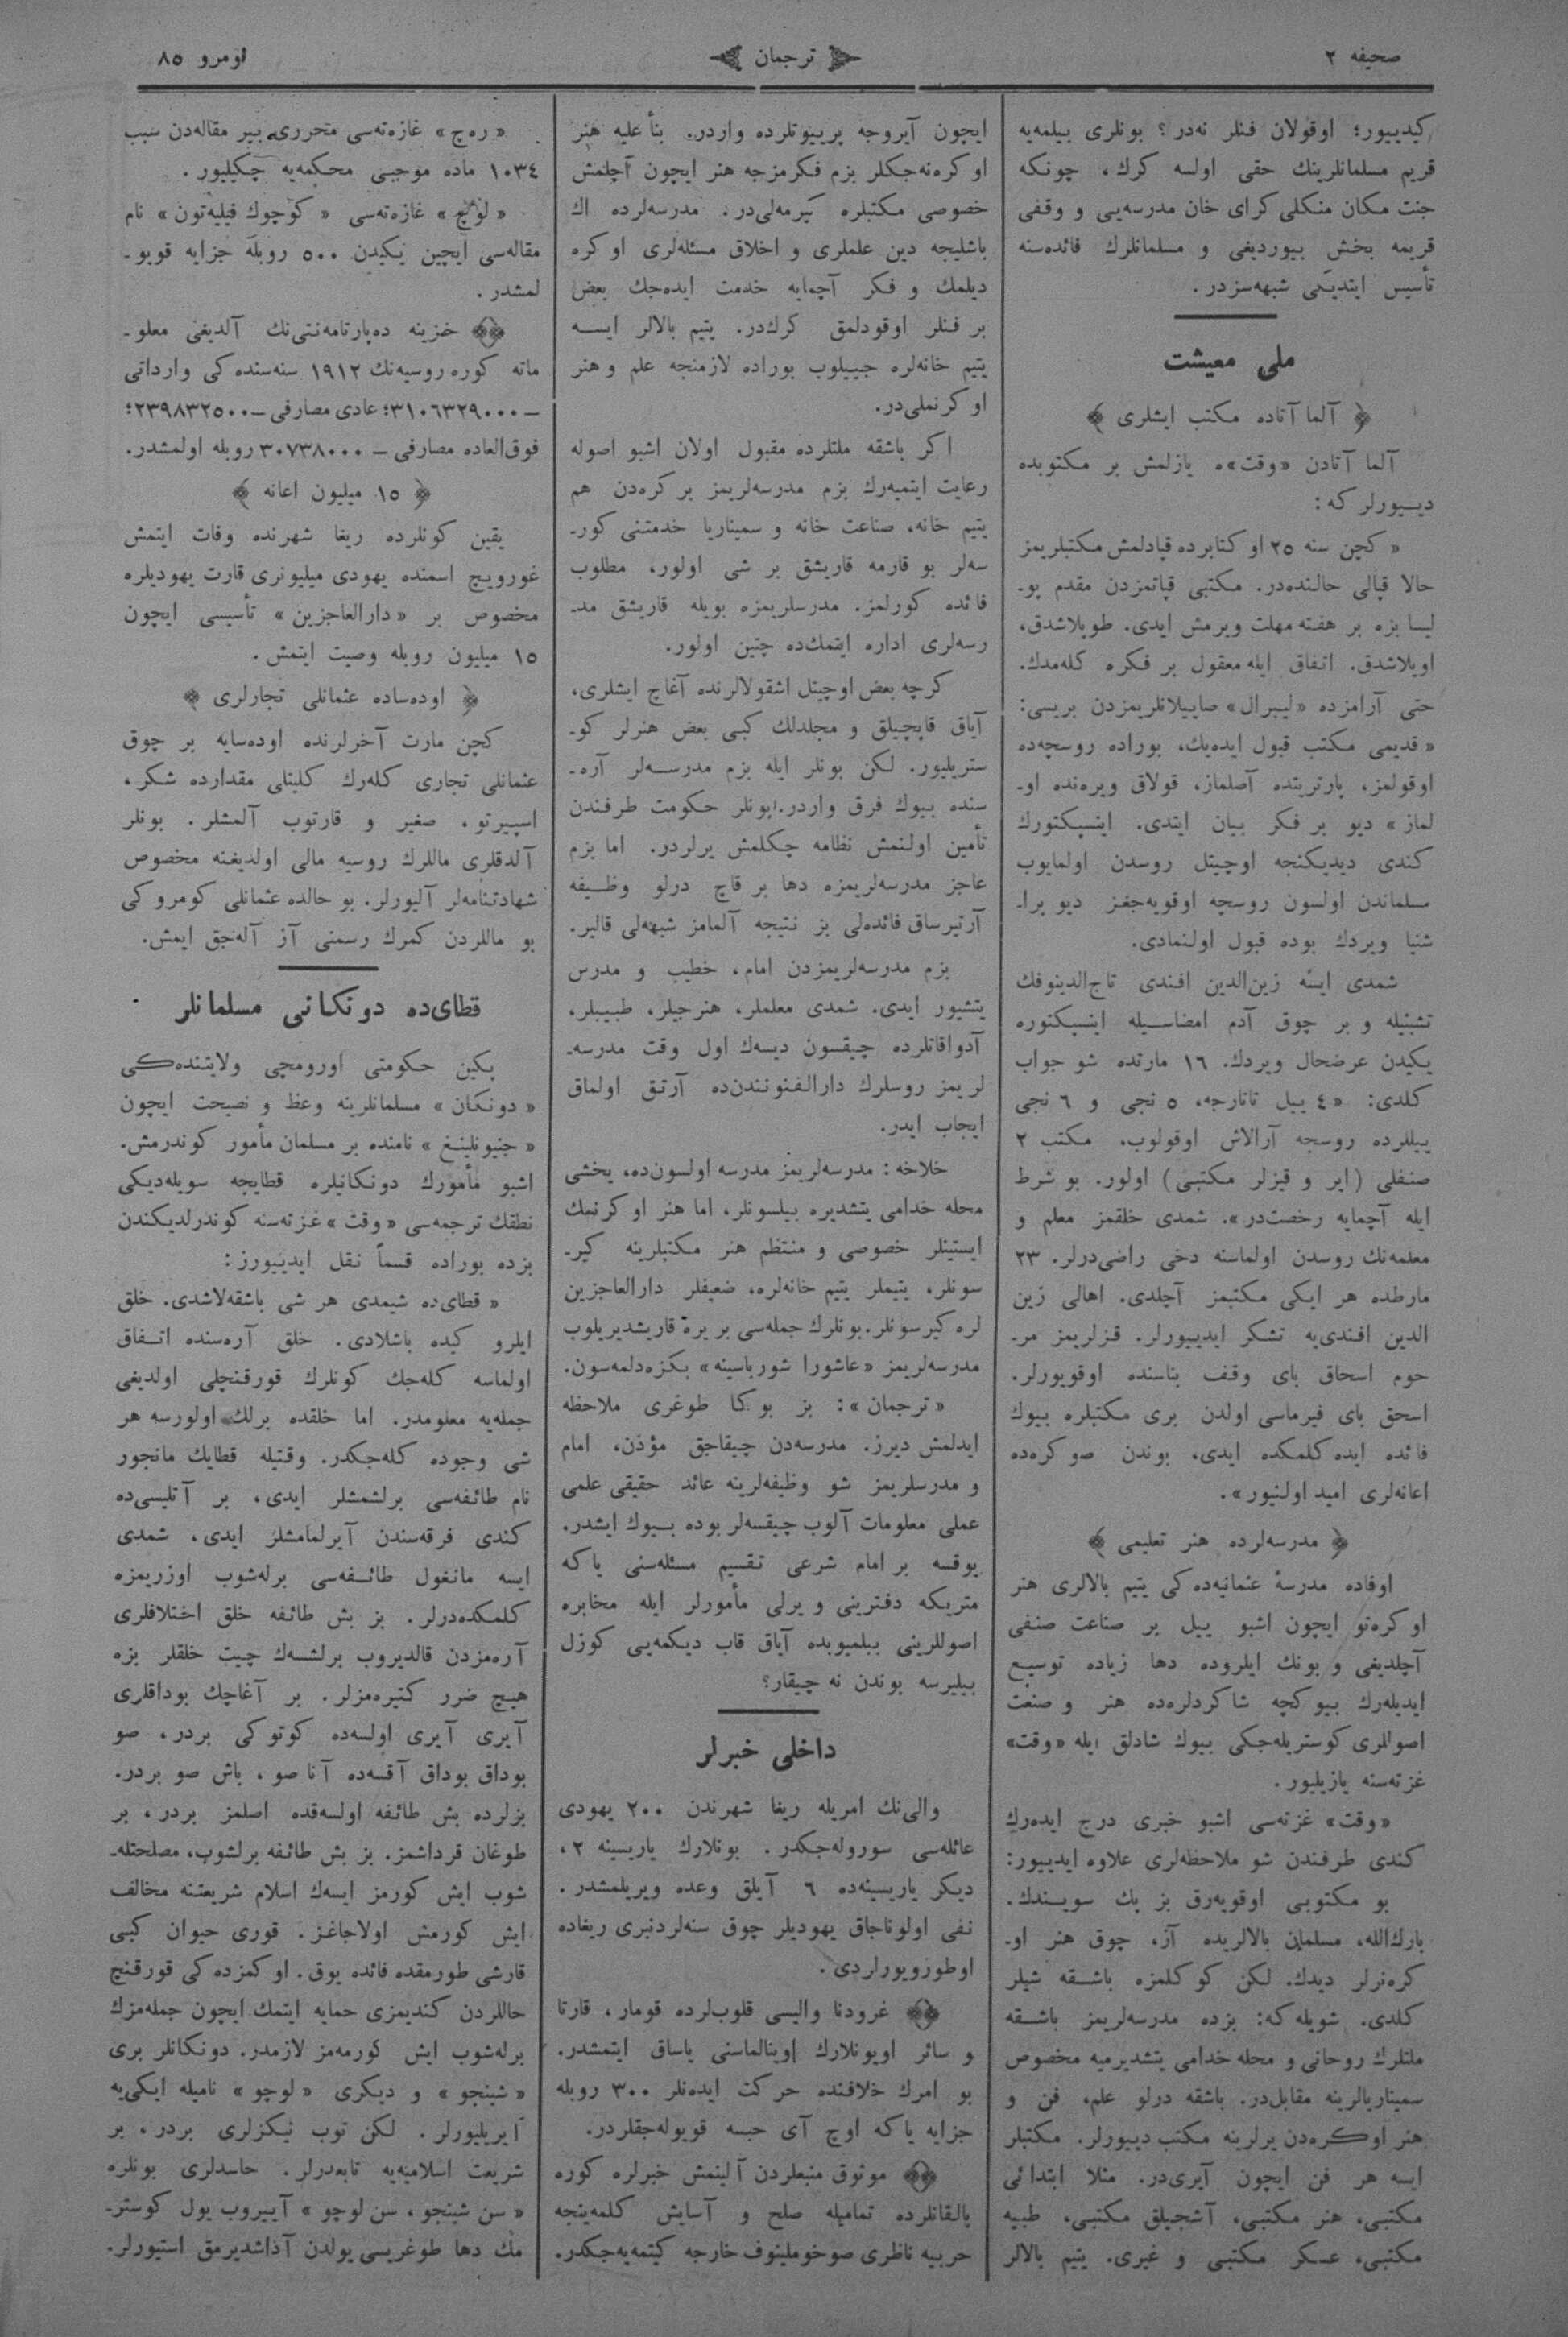 صحیفه ۲
ترجمان
نومرو ۸۵
كیدییور؛ اوقولان فنلر نه‌در؟ بونلری بیلمه‌یه
قریم مسلمانلرینك حقی اولسه كرك، چونكه
جنت مكان منكلی كرای خان مدرسه‌یی و وقفی
قریمه بخش بیوردیغی و مسلمانلرك فائده‌سنه
تأسیس ایتدیكی شبهه‌سزدر.
ملی معیشت
﴿ آلما آتاده مكتب ایشلری ﴾
آلما آتادن «وقت»ه یازلمش بر مكتوبده
دیـیورلر كه:
«كچن سنه ۲۵ اوكتابرده قپادلمش مكتبلریمز
حالا قپالی حالنده‌در. مكتبی قپاتمزدن مقدم پو-
لیسا بزه بر هفته مهلت ویرمش ایدی. طوپلاشدق،
اویلاشدق. اتفاق ایله معقول بر فكره كله‌مدك.
حتی آرامزده «لیبرال» صاییلانلریمزدن بریسی:
«قدیمی مكتب قبول ایده‌یك، بوراده روسچه‌ده
اوقولمز، پارتریتده آصلماز، قولاق ویره‌نده او-
لماز» دیو بر فكر بیان ایتدی. اینسپكتورك
كندی دیدیكنجه اوچیتل روسدن اولمایوب
مسلماندن اولسون روسچه اوقویه‌جغز دیو پرا-
شنیا ویردك بوده قبول اولنمادی.
شمدی ایسه زین‌الدین افندی تاج‌الدینوفك
تشبثیله و بر چوق آدم امضاسـیله اینسپكتوره
یكیدن عرضحال ویردك. ۱٦ مارتده شو جواب
كلدی: «٤ ییل تاتارجه، ٥ نجی و ٦ نجی
ییللرده روسجه آرالاش اوقولوب، مكتب ۲
صنفلی (ایر و قیزلر مكتبی) اولور. بو شرط
ایله آچمایه رخصت‌در». شمدی خلقمز معلم و
معلمه‌نك روسدن اولماسنه دخی راضی‌درلر. ۲۳
مارطده هر ایكی مكتبمز آچلدی. اهالی زین
الدین افندی‌یه تشكر ایدییورلر. قزلریمز مر-
حوم اسحاق بای وقف بناسنده اوقویورلر.
اسحق بای فیرماسی اولدن بری مكتبلره بیوك
فائده ایده كلمكده ایدی، بوندن صوكره‌ده
اعانه‌لری امید اولنیور».
﴿ مدرسه‌لرده هنر تعلیمی ﴾
اوفاده مدرسهٔ عثمانیه‌ده‌كی یتیم بالالری هنر
اوكره‌تو ایچون اشبو ییل بر صناعت صنفی
آچلدیغی و بونك ایلروده دها زیاده توسیـع
ایدیله‌رك بیوكچه شاكردلره‌ده هنر و صنعت
اصوللری كوستریله‌جكی بیوك شادلق ایله «وقت»
غزته‌سنه یازیلیور.
«وقت» غزته‌سی اشبو خبری درج ایده‌رك
كندی طرفندن شو ملاحظه‌لری علاوه ایدییور:
بو مكتوبی اوقویه‌رق بز پك سویـندك.
بارك‌الله، مسلمان بالالریده آز، چوق هنر او-
كره‌نرلر دیدك. لكن كوكلمزه باشـقه شیلر
كلدی. شویله كه: بزده مدرسه‌لریمز باشـقه
ملتلرك روحانی و محله خدامی یتشدیرمیه مخصوص
سمیناریالرینه مقابل‌در. باشقه درلو علم، فن و
هنر اوكره‌دن یرلرینه مكتب دیـیورلر. مكتبلر
ایسه هر فن ایچون آیری‌در. مثلا ابتدائی
مكتبی، هنر مكتبی، آشجیلق مكتبی، طبیه
مكتبی، عسكر مكتبی و غیری. یتیم بالالر
ایچون آیروجه پرییوتلرده واردر. بنأ علیه هنر
اوكره‌نه‌جكلر بزم فكرمزجه هنر ایچون آچلمش
خصوصی مكتبلره كیرمه‌لی‌در. مدرسه‌لرده اك
باشلیجه دین علملری و اخلاق مسئله‌لری اوكره
دیلمك و فكر آچمایه خدمت ایده‌جك بعض
بر فنلر اوقودلمق كرك‌در. یتیم بالالر ایسـه
یتیم خانه‌لره جییلوب بوراده لازمنجه علم و هنر
اوكرنملی‌در.
اكر باشقه ملتلرده مقبول اولان اشبو اصوله
رعایت ایتمیه‌رك بزم مدرسه‌لریمز بر كره‌دن هم
یتیم خانه، صناعت خانه و سمیناریا خدمتنی كور-
سه‌لر بو قارمه قاریشق بر شی اولور، مطلوب
فائده كورلمز. مدرسلریمزه بویله قاریشق مد-
رسه‌لری اداره ایتمك‌ده چتین اولور.
كرچه بعض اوچیتل اشقولالرنده آغاچ ایشلری،
آیاق قاپچیلق و مجلدلك كبی بعض هنرلر كو-
ستریلیور. لكن بونلر ایله بزم مدرسـه‌لر آره-
سنده بیوك فرق واردر. بونلر حكومت طرفندن
تأمین اولنمش نظامه چكلمش یرلردر. اما بزم
عاجز مدرسه‌لریمزه دها بر قاچ درلو وظـیفه
آرتیرساق فائده‌لی بز نتیجه آلمامز شبهه‌لی قالیر.
بزم مدرسه‌لریمزدن امام، خطیب و مدرس
یتشیور ایدی. شمدی معلملر، هنرجیلر، طبیبلر،
آدواقاتلرده چیقسون دیسه‌ك اول وقت مدرسه-
لریمز روسلرك دارالفنونندن‌ده آرتق اولماق
ایجاب ایدر.
خلاخه: مدرسه‌لریمز مدرسه اولسون‌ده، یخشی
محله خدامی یتشدیره بیلسونلر، اما هنر اوكرنمك
ایستینلر خصوصی و منتظم هنر مكتبلرینه كیر-
سونلر، یتیملر یتیم خانه‌لره، ضعیفلر دارالعاجزین
لره كیرسونلر. بونلرك جمله‌سی بر یره قاریشدیریلوب
مدرسه‌لریمز «عاشورا شورباسینه» بكزه‌دلمه‌سون.
«ترجمان»: بز بوكا طوغری ملاحظه
ایدلمش دیرز. مدرسه‌دن چیقاجق مؤذن، امام
و مدرسلریمز شو وظیفه‌لرینه عائد حقیقی علمی
عملی معلومات آلوب چیقسه‌لر بوده بـیوك ایشدر.
یوقسه بر امام شرعی تقسیم مسئله‌سنی یاكه
متریكه دفترینی و یرلی مأمورلر ایله مخابره
اصوللرینی بیلمیوبده آیاق قاب دیكمه‌یی كوزل
بیلیرسه بوندن نه چیقار؟
داخلی خبرلر
والی‌نك امریله ریغا شهرندن ۲۰۰ یهودی
عائله‌سی سوروله‌جكدر. بونلارك یاریسینه ۲،
دیكر یاریسینه‌ده ٦ آیلق وعده ویریلمشدر.
نفی اولوناجاق یهودیلر چوق سنه‌لردنبری ریغاده
اوطورویورلردی.
غرودنا والیسی قلوب‌لرده قومار، قارتا
و سائر اویونلارك اوینالماسنی یاساق ایتمشدر.
بو امرك خلافنده حركت ایده‌نلر ۳۰۰ روبله
جزایه یاكه اوچ آی حبسه قویوله‌جقلردر.
موثوق منبعلردن آلینمش خبرلره كوره
بالقانلرده تمامیله صلح و آسایش كلمه‌ینجه
حربیه ناظری صوخوملینوف خارجه كیتمه‌یه‌جكدر.
«ره‌چ» غازه‌ته‌سی متحرری بیر مقاله‌دن سبب
۱۰۳٤ ماده موجبی محكمه‌یه چكیلیور.
«لوچ» غازه‌ته‌سی «كوچوك فیلیه‌تون» نام
مقاله‌سی ایچین یكیدن ۵۰۰ روبله جزایه قویو-
لمشدر.
خزینه ده‌پارتامه‌نتی‌نك آلدیغی معلو-
ماته كوره روسیه‌نك ۱۹۱۲ سنه‌سنده‌كی وارداتی
— ۳۱۰٦۳۲۹۰۰۰؛ عادی مصارفی — ۲۳۹۸۳۲۵۰۰؛
فوق‌العاده مصارفی — ۳۰۷۳۸۰۰۰ روبله اولمشدر.
﴿ ۱۵ میلیون اعانه ﴾
یقین كونلرده ریغا شهرنده وفات ایتمش
غورویچ اسمنده یهودی میلیونری قارت یهودیلره
مخصوص بر «دارالعاجزین» تأسیسی ایچون
۱۵ میلیون روبله وصیت ایتمش.
﴿ اوده‌ساده عثمانلی تجارلری ﴾
كچن مارت آخرلرنده اوده‌سایه بر چوق
عثمانلی تجاری كله‌رك كلیتلی مقدارده شكر،
اسپیرتو، صغیر و قارتوب آلمشلر. بونلر
آلدقلری ماللرك روسیه مالی اولدیغنه مخصوص
شهادتنامه‌لر آلیورلر. بو حالده عثمانلی كومروكی
بو ماللردن كمرك رسمنی آز آله‌جق ایمش.
قطای‌ده دونكانی مسلمانلر
پكین حكومتی اورومچی ولایتنده‌كی
«دونكان» مسلمانلرینه وعظ و نصیحت ایچون
«جنیونلینغ» نامنده بر مسلمان مأمور كوندرمش.
اشبو مأمورك دونكانیلره قطایجه سویله‌دیكی
نطقك ترجمه‌سی «وقت» غزته‌سنه كوندرلدیكندن
بزده بوراده قسماً نقل ایدییورز:
«قطای‌ده شیمدی هر شی باشقه‌لاشدی. خلق
ایلرو كیده باشلادی. خلق آره‌سنده اتـفاق
اولماسه كله‌جك كونلرك قورقنچلی اولدیغی
جمله‌یه معلومدر. اما خلقده برلك اولورسه هر
شی وجوده كله‌جكدر. وقتیله قطایك مانجور
نام طائفه‌سی برلشمشلر ایدی، بر آتلیسی‌ده
كندی فرقه‌سندن آیرلمامشلر ایدی، شمدی
ایسه مانغول طائـفه‌سی برله‌شوب اوزریمزه
كلمكده‌درلر. بز بش طائفه خلق اختلافلری
آره‌مزدن قالدیروب برلشسه‌ك چیت خلقلر بزه
هیچ ضرر كتیره‌مزلر. بر آغاچك بوداقلری
آیری آیری اولسه‌ده كوتوكی بردر، صو
بوداق بوداق آقسه‌ده آنا صو، باش صو بردر.
بزلرده بش طائفه اولسه‌قده اصلمز بردر، بر
طوغان قرداشمز. بز بش طائفه برلشوب، مصلحتله-
شوب ایش كورمز ایسه‌ك اسلام شریعتنه مخالف
ایش كورمش اولاجاغز. قوری حیوان كبی
قارشی طورمقده فائده یوق. اوكمزده‌كی قورقنچ
حاللردن كندیمزی حمایه ایتمك ایچون جمله‌مزك
برله‌شوب ایش كورمه‌مز لازمدر. دونكانلر بری
«شینجو» و دیكری «لوچو» نامیله ایكی‌یه
آیریلیورلر. لكن توب نیكزلری بردر، بر
شریعت اسلامیه‌یه تابعدرلر. حاسدلری بونلره
«سن شینجو، سن لوچو» آییروب یول كوستر-
مك دها طوغریسی یولدن آذاشدیرمق استیورلر.